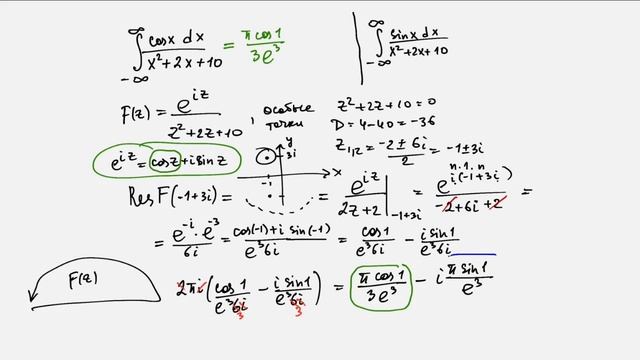 ∫_{-∞}^{∞} cosx dx / (x²+2x+10) = π cos1 / 3e³
∫_{-∞}^{∞} sinx dx / (x²+2x+10)
F(z) = e^{iz} / (z²+2z+10), особые точки
z²+2z+10=0
D = 4-40 = -36
z_{1,2} = (-2 ± 6i) / 2 = -1±3i
e^{iz} = cosz + i sinz
y
3i
-1
x
Res F(-1+3i) = = e^{iz} / (2z+2) |_{-1+3i} = e^{i(-1+3i)} / (-2+6i+2) =
= e^{-i}·e^{-3} / 6i = (cos(-1)+i sin(-1)) / e³6i = cos1 / e³6i - i sin1 / e³6i
F(z)
2πi (cos1 / e³6i - i sin1 / e³6i) = π cos1 / 3e³ - i π sin1 / e³
3 3